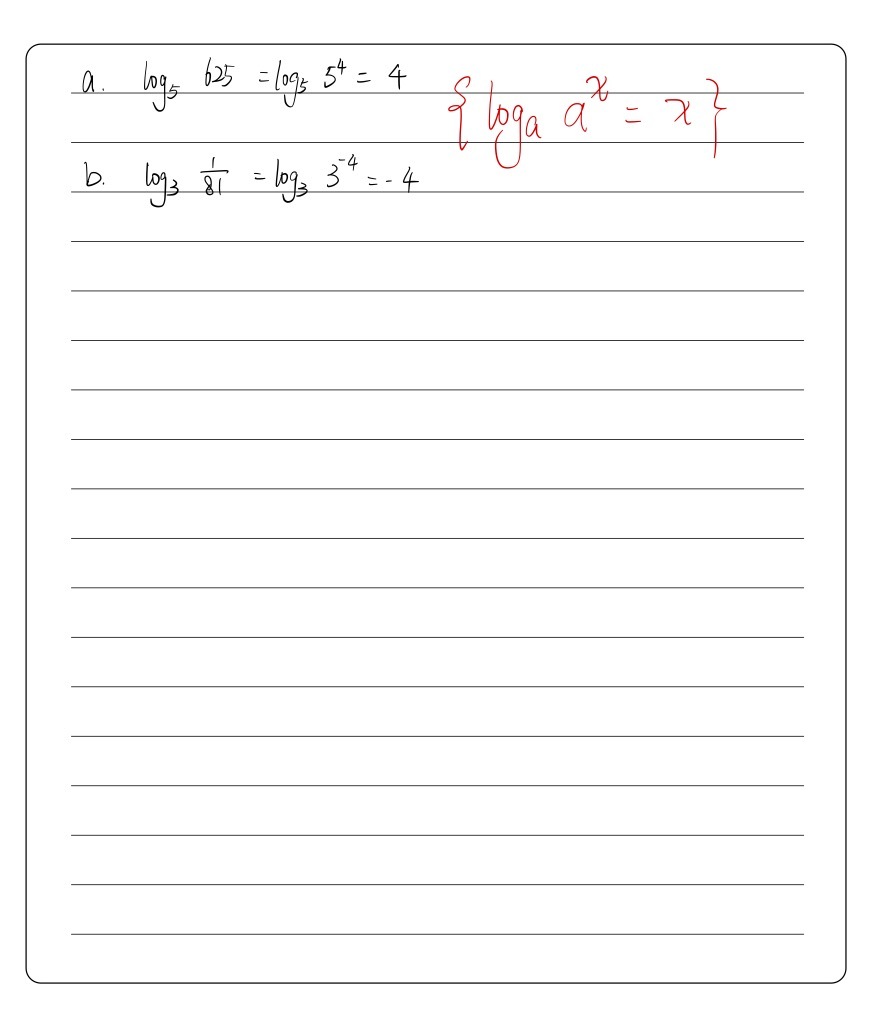 a. log₅ 625 = log₅ 5⁴ = 4
{ logₐ aˣ = x }
b. log₃ 1/81 = log₃ 3⁻⁴ = -4